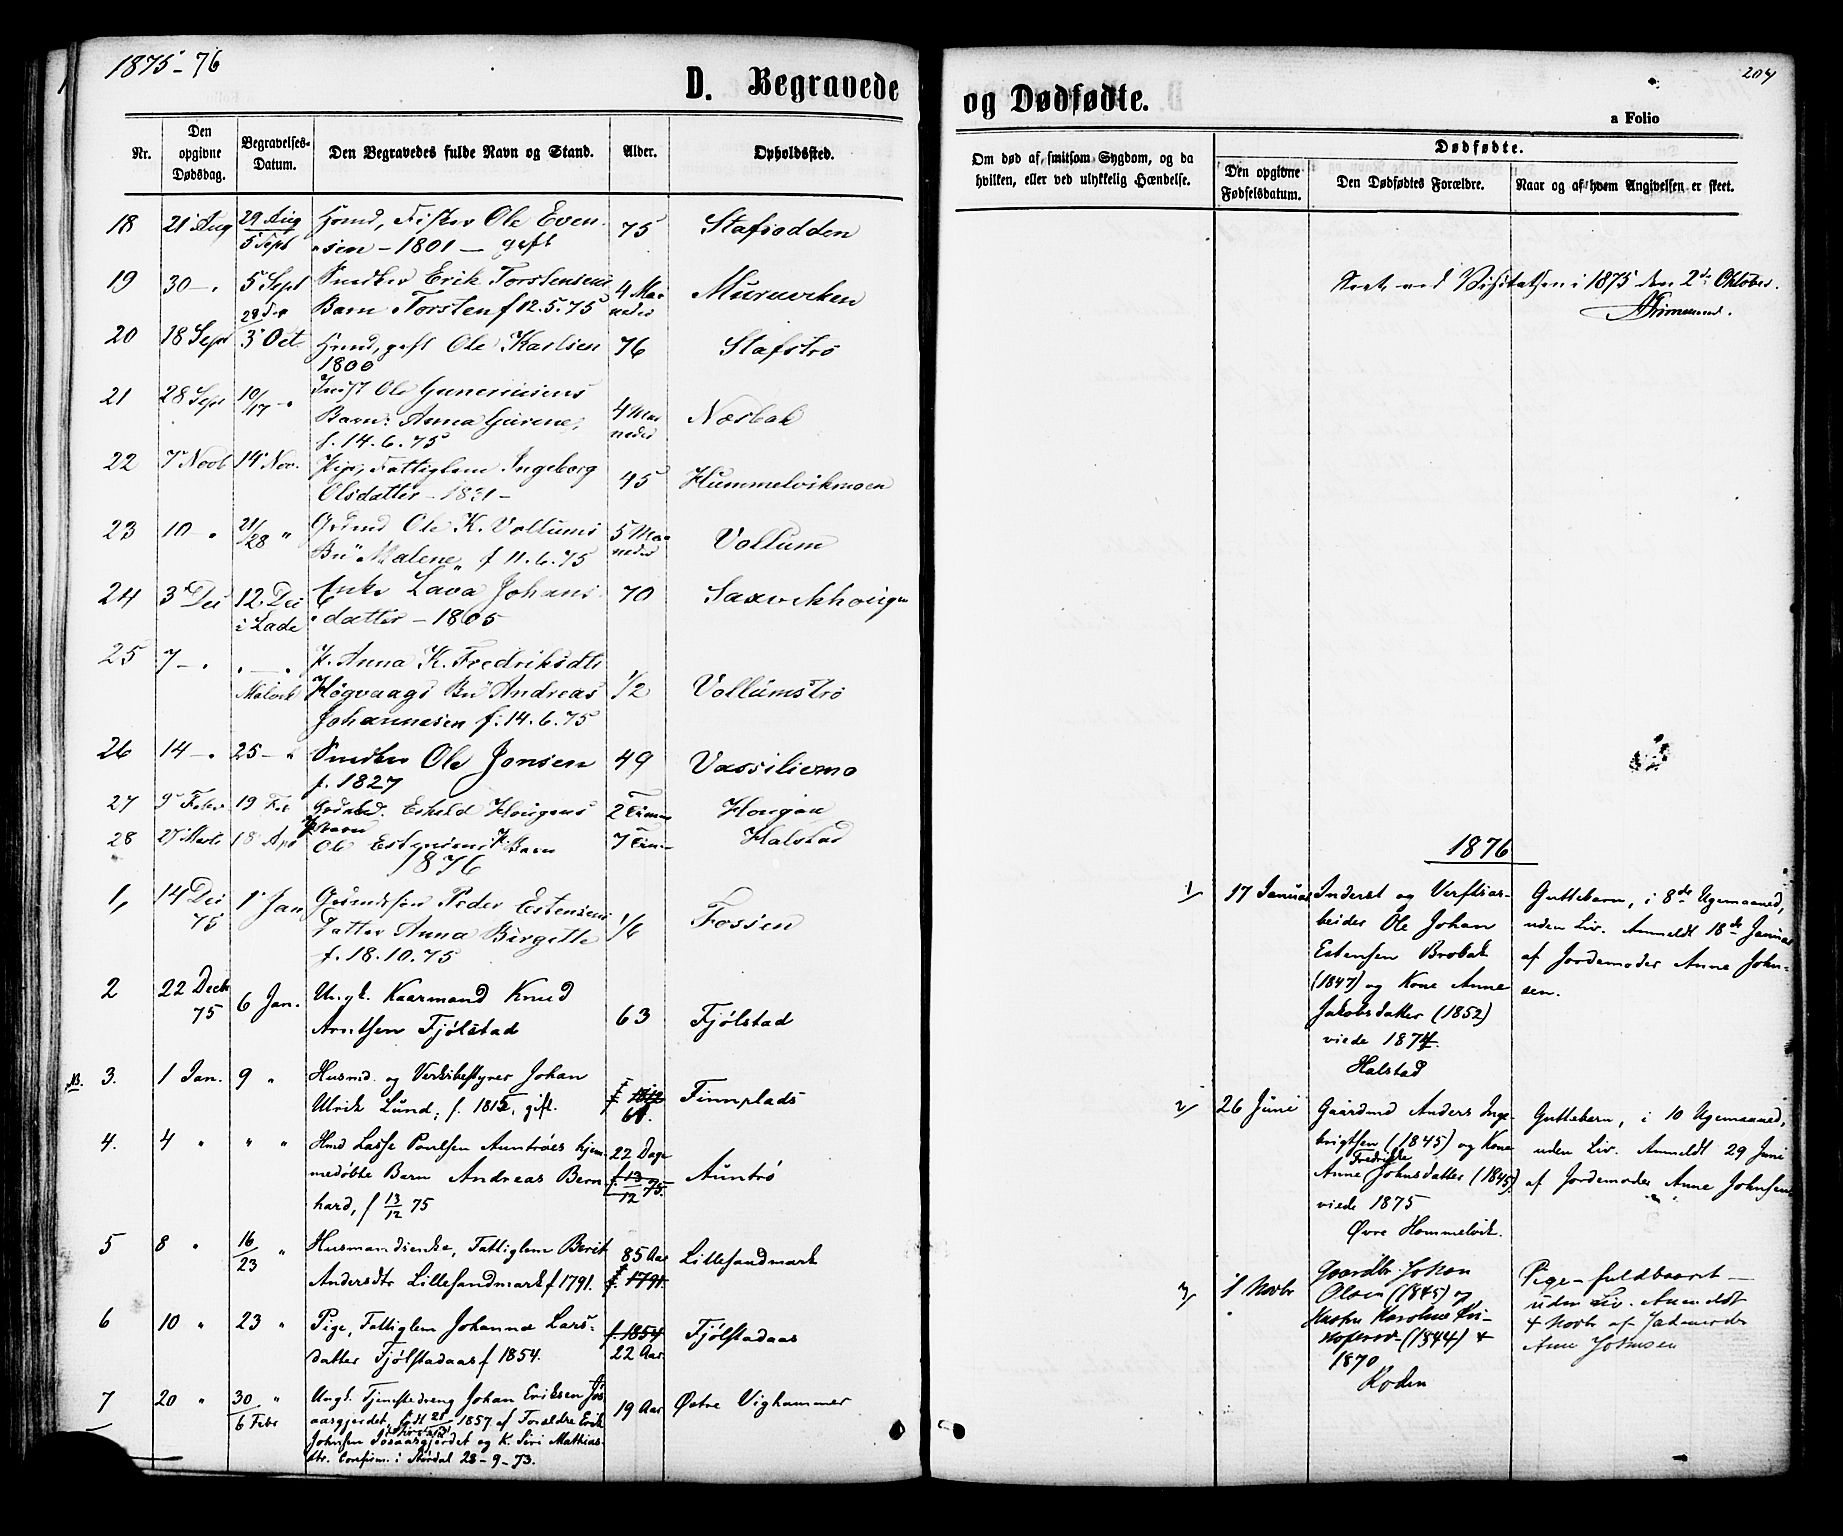 1875-76
D. Begravede
Nr.
Den opgivne Dødsdag.
Begravelses-Datum.
Den Begravedes fulde Navn og Stand.
Alder.
Opholdssted.
18 21 Aug 29 Aug Hsmd, Fisker Ole Even- 75 Stafsodden
5 Sept sen - 1801 - gift
19 30 - " 5 Sept Erik Torstensens 4 Maa- Muruviken
Barn Torsten f 12.5.75 neder
20 18 Sept 3 Oct Hsmd, gift Ole Karlsen 76 Stafstrø
1800
21 28 Sept 10/17 - " Inst Ole Gunerius̈ens
Barn: Anna Gurine, 4 Maa- Næsbak
f. 14.6.75 neder
22 7 Novb 14 Nov. Pige, Fattiglem Ingeborg 45 Hummelvikmoen
Olsdatter - 1831 -
23 10 " 21/28 " Grdmd Ole K. Vollums 5 Maa- Vollum
Bn "Malene" f 11.6.75 neder
24 3 Dec 12 Dec Enke Lava Johans- 70 Saxvikhougen
i Lade datter - 1805
25 7 - " " - " P. Anna K. Fredriksdtr
Malvik Høgvaags Bn Andreas 1/2 Vollumstrø
Johannesen f: 14.6.75
26 14 - " 25 - " Ole Jonsen 49 Vassiliemo
f. 1827
27 9 Febr 19 Feb Eskild Hougens 2 Timer Hougan
Barn
28 27 Marts 18 Apr Ole Estensens Barn 7 Tim Halstad
1876
1, 14 Dec 75 1 Jan Grdmdsøn Peder Estensens 1/6 Fossen
Datter Anna Birgitte
f. 18.10.75
2 22 Decb 75 6 Jan. Ungk. Kaarmand Knud
Arntsen Fjølstad 63 Fjølstad
NB. 3. 1 Jan. 9 " Husmd. og Verksbestyrer Johan f. 1812 Finnplads
Ulrik Lund, f. 1815, gift. 61.
4. 4 " " " Hmd Lasse Poulsen Auntrøes hjem- 22 Dage
medøbte Barn Andreas Bern- f. 13/12 75. Auntrø
hard, f 13/12 75
5 8 " 16/23 " Husmandsenke, Fattiglem Berit 85 Aar Lillesandmark
Andersdtr Lillesandmark f 1791. f. 1791.
6 10 " 23 " Pige, Fattiglem Johanna Lars- f. 1854 Fjølstadaas
datter Fjølstadaas f 1854. 22 Aar.
7 20 " 30 " Ungk. Tjenestedreng Johan Eriksen Jøs- 19 Aar Østre Vighammer
6 Febr aasgjerdet, født 21/ 1857 af Forældre Erik
Johnsen Jøsaasgjerdet og K. Siri Mathias-
dtr. Confirm. i Størdal 28-9-73.
204
og Dødfødte.
a Folio
Om død af smitsom Sygdom, og da hvilken, eller ved ulykkelig Hændelse.
Dødfødte.
Den opgivne Fødselsdatum.
Den Dødfødtes Forældre.
Naar og af hvem Angivelsen er skeet.
ved Visitatsen i 1875 den 2de Oktober.
1876
1/ 17 Januar Inderst og Verftsar- Guttebarn, i 8de Ugemaaned,
beider Ole Johan uden Liv. Anmeldt 18de Januar
Estensen Brobak af Jordemoder Anne John-
(1847) og Kone Anne sen.
Jakobsdatter (1852)
viede 1874.
Halstad
2/ 26 Juni Gaardmd Anders Inge- Guttebarn, i 10 Ugemaaned,
brigtsen (1845) og Kone uden Liv. Anmeldt 29 Juni
Anne Fredrikke Johnsdatter (1845) af Jordemoder Anne Johnsen.
viede 1875
Øvre Hommelvik.
3/ 1 Novbr Gaardbr. Johan Pige - fuldbaaret -
Olsen (1845) og uden Liv. Anmeldt
Karoline (1844) 4 Novbr af Jordemoder
1870 Anne Johnsen